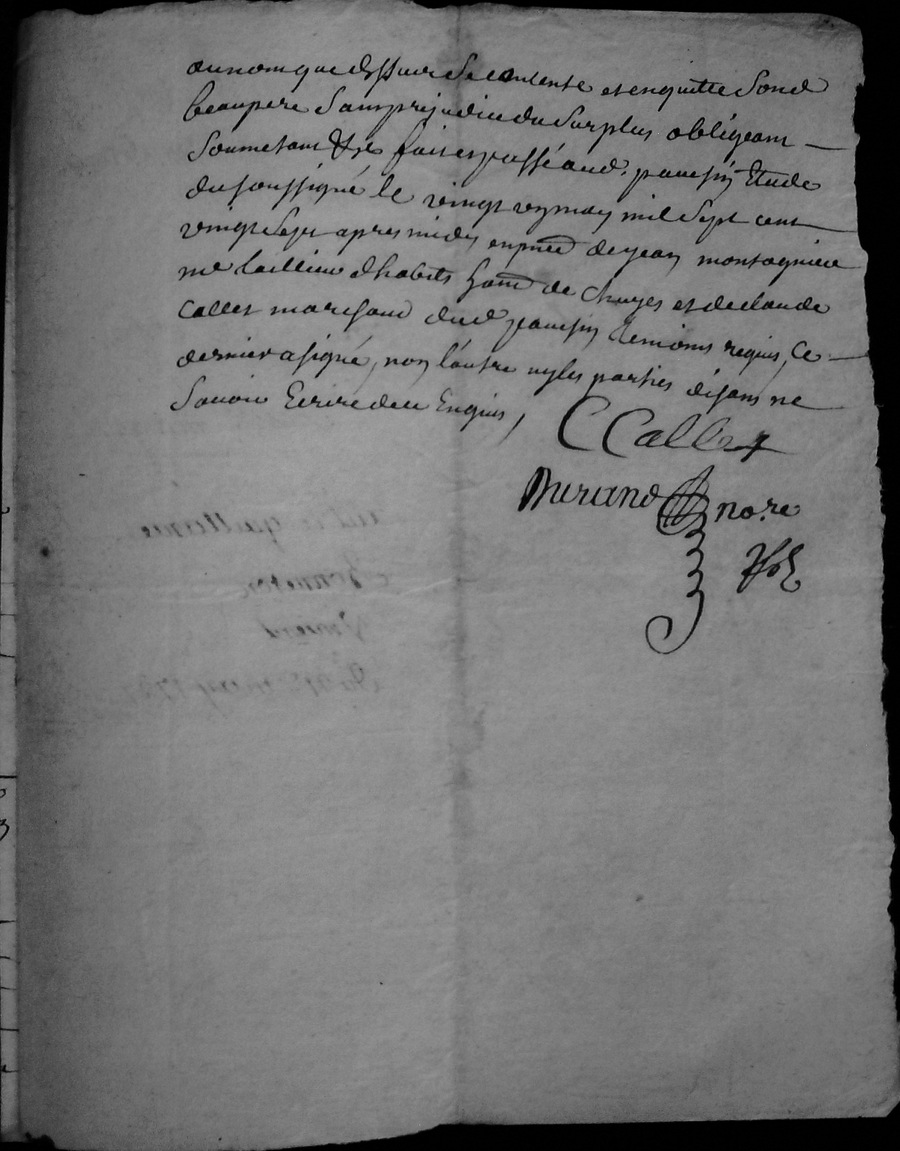 au nom que dessus se contente et en quitte sond
beaupere sans prejudice du surplus obligeans
soumetans &c fait et passé aud. pomsin Etude
du soussigné le vingt un may mil sept cent
vingt sept apres midy en pnce de jean montagnieu
me tailleur d'habits de et de claude
Callet marchand dud temoins requis, Ce
dernier a signé, non l'autre ny les parties disans ne
savoir Ecrire de ce Enquis,
C Callet
Durand nore